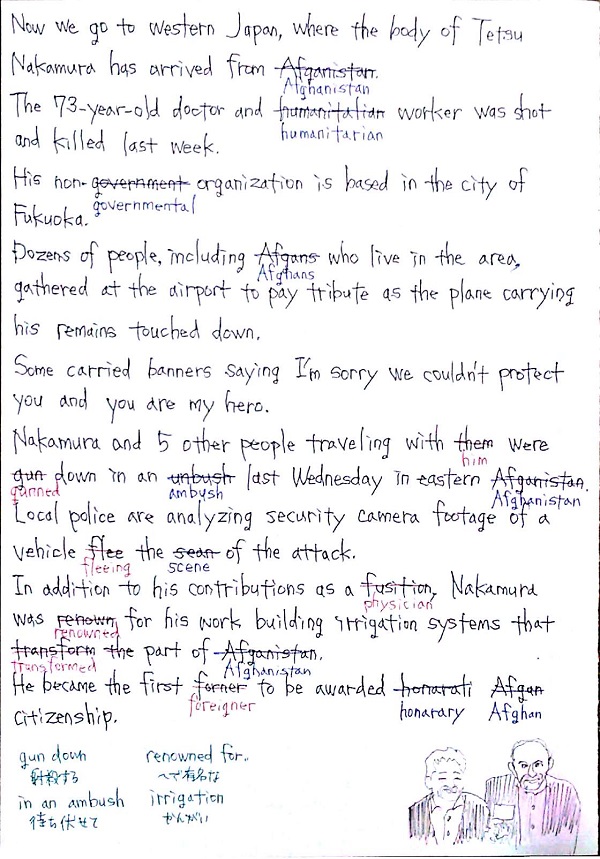 Now we go to western Japan, where the body of Tetsu
Nakamura has arrived from Afganistan.
Afghanistan
The 73-year-old doctor and humanitatian worker was shot
humanitarian
and killed last week.
His non-government organization is based in the city of
governmental
Fukuoka.
Dozens of people, including Afgans who live in the area,
Afghans
gathered at the airport to pay tribute as the plane carrying
his remains touched down.
Some carried banners saying I'm sorry we couldn't protect
you and you are my hero.
Nakamura and 5 other people traveling with them were
him
gun down in an unbush last Wednesday in eastern Afganistan.
gunned ambush Afghanistan
Local police are analyzing security camera footage of a
vehicle flee the sean of the attack.
fleeing scene
In addition to his contributions as a fusition, Nakamura
physician
was renown for his work building irrigation systems that
renowned
transform the part of Afganistan.
transformed Afghanistan
He became the first forner to be awarded honarati Afgan
foreigner honarary Afghan
citizenship.
gun down renowned for..
射殺する 〜で有名な
in an ambush irrigation
待ち伏せて かんがい